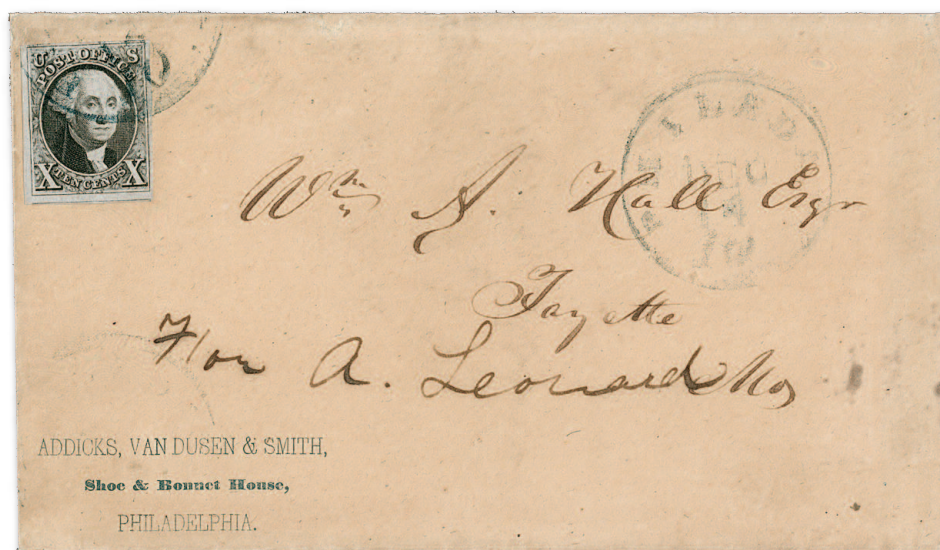 U S
POST OFFICE
X TEN CENTS X
10
DEC
10
Wm A. Hall Esqr
Fayette
Hon A. Leonard Mo
ADDICKS, VAN DUSEN & SMITH,
Shoe & Bonnet House,
PHILADELPHIA.